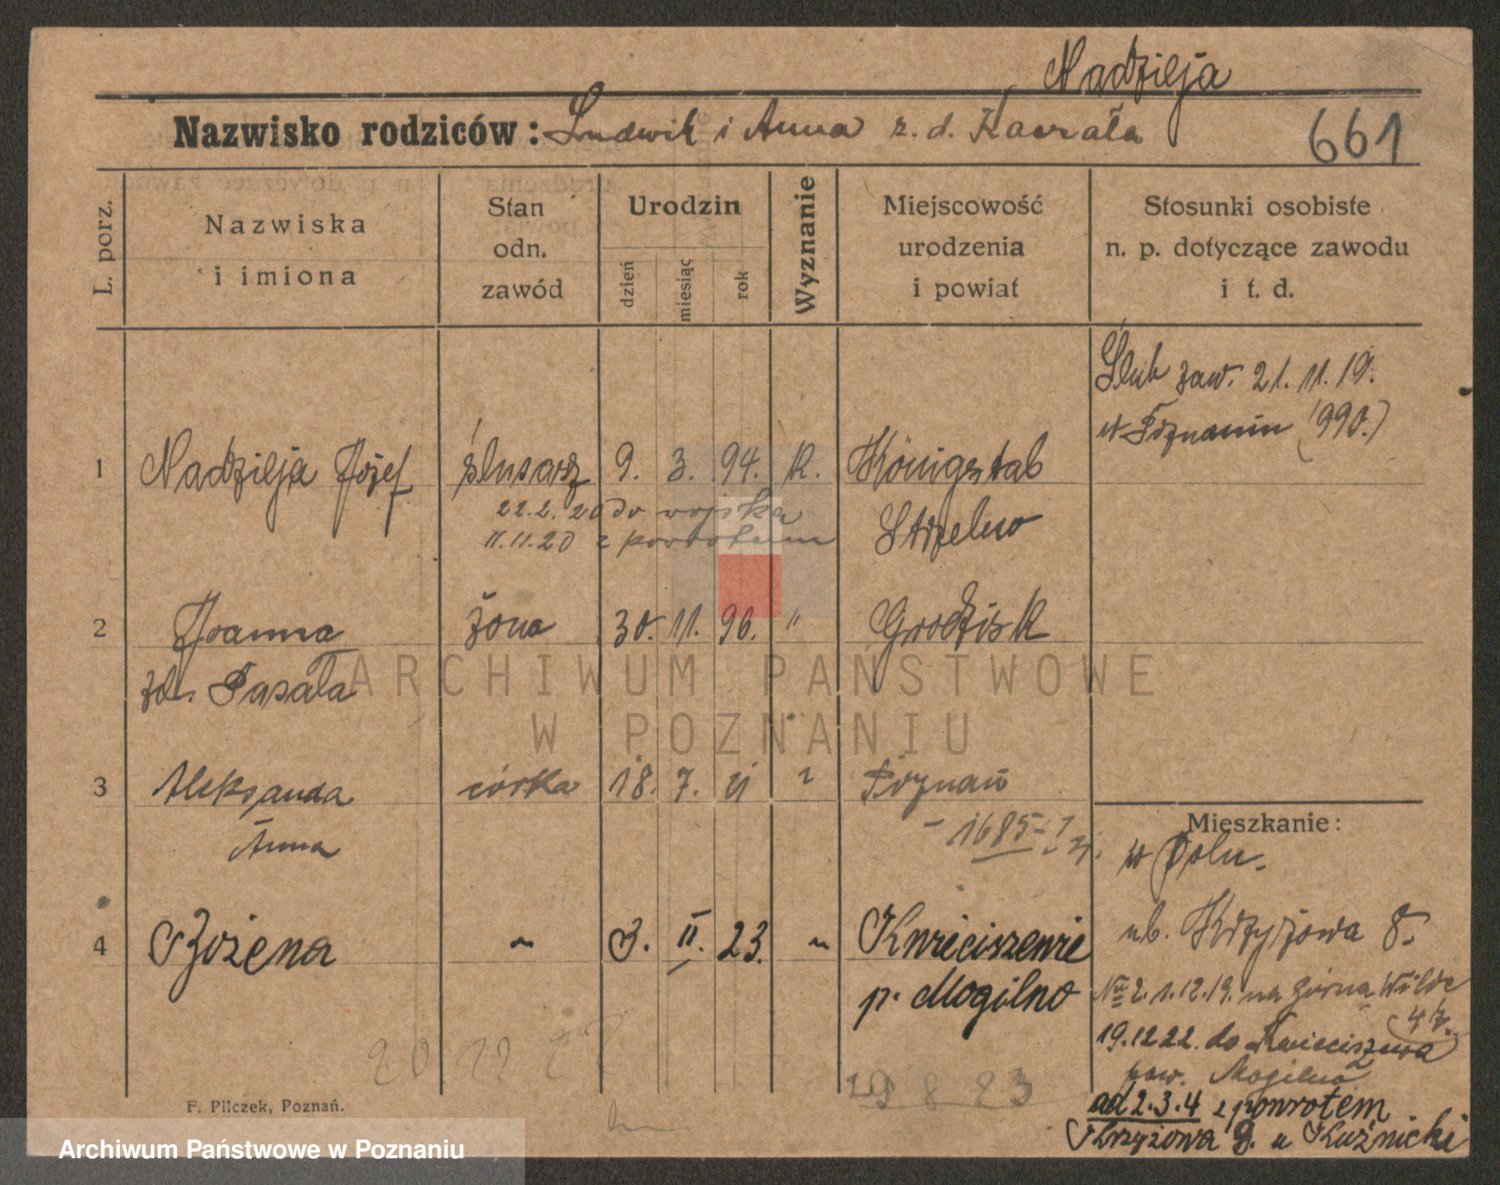 Nadzieja
Nazwisko rodziców: Ludwik i Anna z. d. Kawała
661
L. porz.
Nazwiska
i imiona
Stan
odn.
zawód
Urodzin
dzień
miesiąc
rok
Wyznanie
Miejscowość
urodzenia
i powiat
Stosunki osobiste
n. p. dotyczące zawodu
i t. d.
Ślub zaw. 21. 11. 19.
w Poznaniu (990.)
1 Nadzieja Józef ślusarz 9. 3. 94. k. Königstab
22.2.20 do wojska
Strzelno
11.11.20 z powrotem
2 Joanna żona 30. 11. 96. " Grodzisk
zd. Pasała
ARCHIWUM PAŃSTWOWE
W POZNANIU
3 Aleksanda córka 18. 7. 21 " Poznań
Anna
1685
Mieszkanie:
w Polu.
4 Bożena " 3. II. 23. " Kwieciszewie
p. Mogilno
ub. Krzyżowa 8.
No 2. 1.12.19. na Górna Wilde
47.
19.12.22. do Kwieciszewa
pow. Mogilno
ad 2.3.4 z powrotem
Krzyżowa 8. u Kuźnicki
20 12 22
19 8 23
F. Pilczek, Poznań.
Archiwum Państwowe w Poznaniu